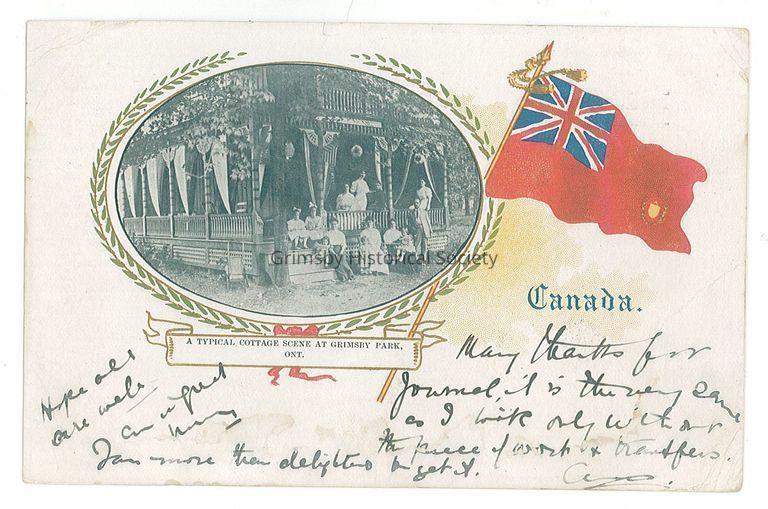 Grimsby Historical Society
Canada.
A TYPICAL COTTAGE SCENE AT GRIMSBY PARK,
ONT.
Many thanks for
Journal, it is the very same
as I took only without
the piece of work & transfers.
I am more than delighted to get it.
Hope all
are well
am in great
hurry